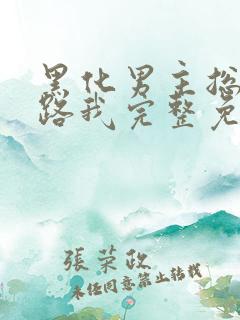 黑化男主总
路我完整免
張荣政
未经同意禁止转载